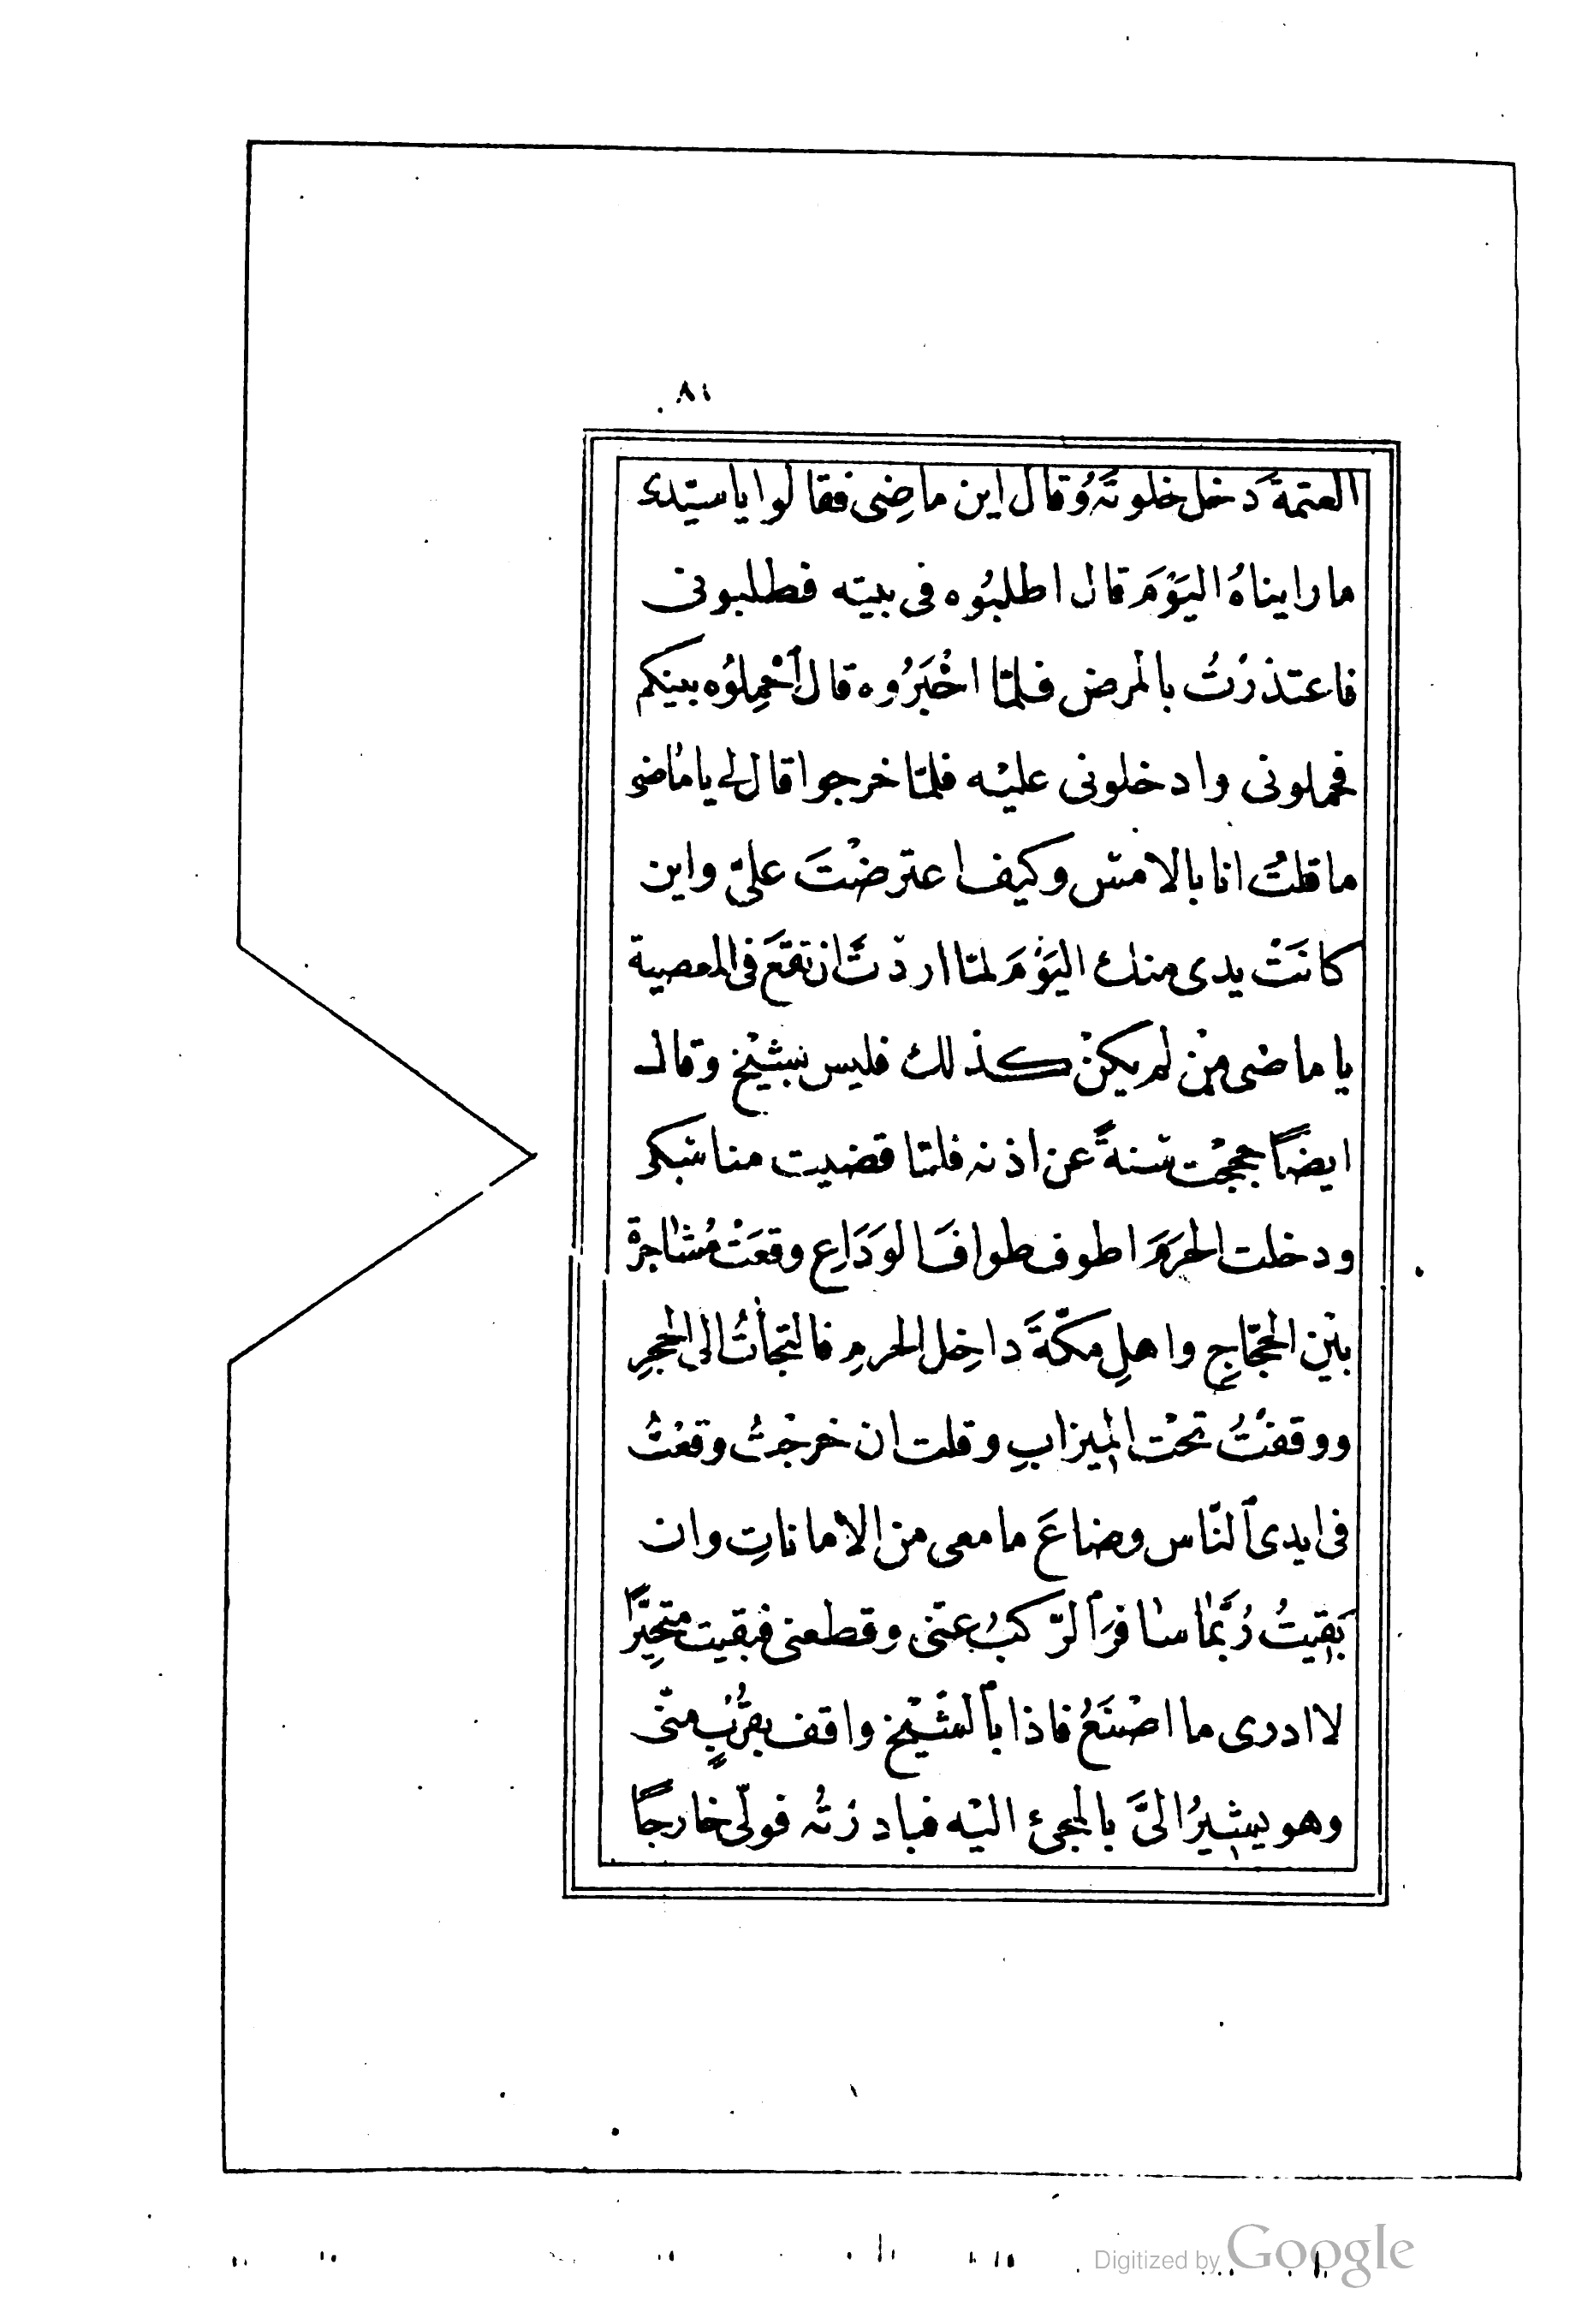 ٨١
العتمة دخل خلوتَهُ وقال اين ماضِى فقالوا يا سيّدى
ما رايناهُ اليَوْمَ قال اطلبُوه فى بيته فطلبونى
فاعتذرْتُ بالمرض فلمّا اخْبَرُوه قال أحْمِلُوُه بينكم
فحملونى وادخلونى عليْه فلمّا خرجوا قال لى يا ماضى
ما قلتُ انا بالامْس وكيف اعترضْتَ علىّ واين
كانَتْ يدى منك اليَوْمَ لمّا اردْتَّ ان تقَعَ فى المعصية
يا ماضى مِنْ لم يكنْ كذلك فليس بشيْخ وقال
ايضًا حججْت سنةً عن اذنه فلمّا قضيت مناسكى
ودخلت الحرَمَ اطوف طوافَ الوَدَاعِ وقعَتْ مُشاجرة
بيْن الحجّاجِ واهلِ مكّةَ داخِل الحرمِ فالتجأتُ الى الحجرِ
ووقفْتُ تحْت الميزابِ وقلت ان خرجْتُ وقعْتُ
فى ايدى ألنّاس وضاعَ ما معى من الاماناتِ وان
بَقِيتُ رُبَّما سافرَ ألرّكبُ عنّى وقطعنى فبقيت متحيِّرًا
لا ادرى ما اصْنَعُ فاذا بألشّيْخ واقف بقُرْبٍ منّى
وهو يشيرُ الىَّ بالمجئ اليْه فبادرْتُه فولّى خارجًا
Digitized by Google